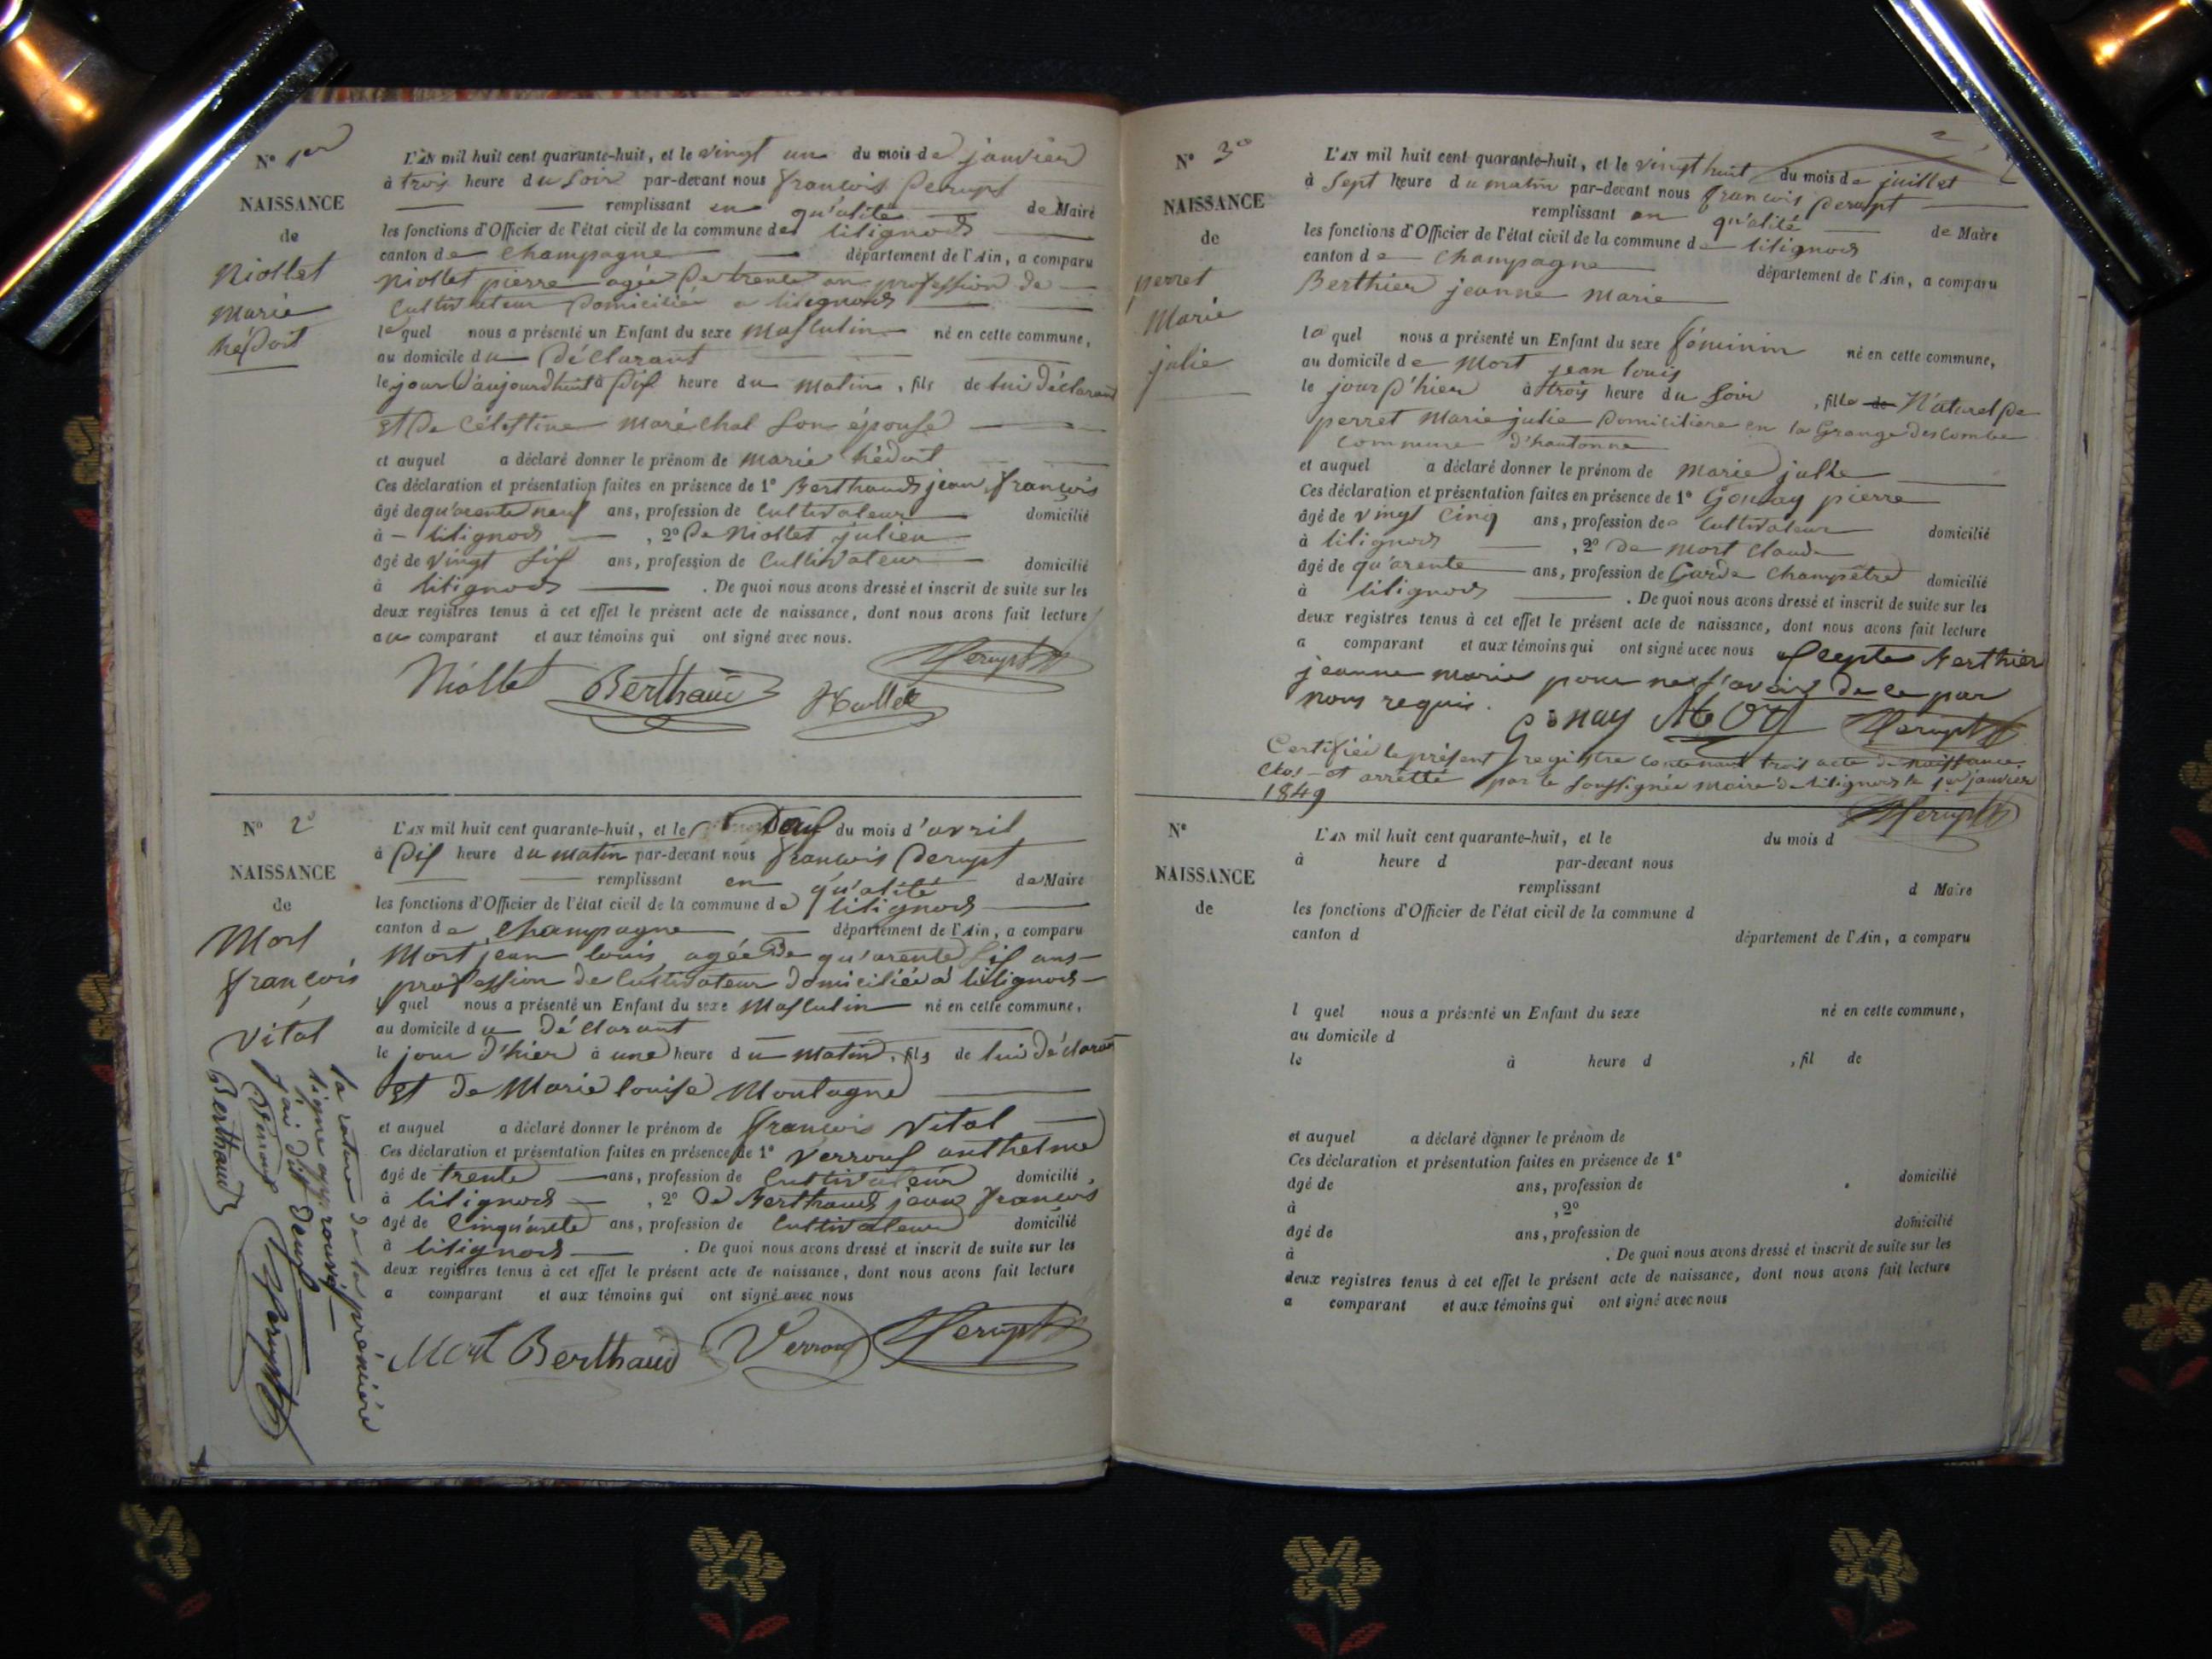 N° 1er
NAISSANCE
de
Niollet
Marie
hédoit
L'AN mil huit cent quarante-huit, et le vingt un du mois de janvier
à trois heure du soir par-devant nous françois Derupt
remplissant en qu'alité de Maire
les fonctions d'Officier de l'état civil de la commune de litignods
canton de Champagne département de l'Ain, a comparu
Niollet pierre agée de trente an profession de
Cultivateur Domiciliée a litignods
lequel nous a présenté un Enfant du sexe Masculin né en cette commune,
au domicile du Déclarant
le jour d'aujourdhuit à Dix heure du matin, fils de lui Déclarant
et De Célestine Maréchal Son épouse
et auquel a déclaré donner le prénom de Marie hédoit
Ces déclaration et présentation faites en présence de 1° Berthaud jean françois
âgé de qu'arente neuf ans, profession de Cultivateur domicilié
à litignods, 2° De Niollet julien
âgé de vingt six ans, profession de Cultivateur domicilié
à litignods. De quoi nous avons dressé et inscrit de suite sur les
deux registres tenus à cet effet le présent acte de naissance, dont nous avons fait lecture
au comparant et aux témoins qui ont signé avec nous.
Niollet Berthaud Derupt
N° 2e
NAISSANCE
de
Mort
françois
Vital
la rature de la première
ligne approuvé
j'ai dit deux
Verroux Derupt
Berthaud
L'AN mil huit cent quarante-huit, et le Deux du mois d'avril
à Dix heure du matin par-devant nous françois Derupt
remplissant en qu'alité de Maire
les fonctions d'Officier de l'état civil de la commune de litignods
canton de Champagne département de l'Ain, a comparu
Mort jean louis agée De qu'arente Six ans
profession de Cultivateur domiciliée à litignods
l quel nous a présenté un Enfant du sexe Masculin né en cette commune,
au domicile du Déclarant
le jour d'hier à une heure du matin, fils de lui Déclarant
et de Marie louise Montagne
et auquel a déclaré donner le prénom de françois Vital
Ces déclaration et présentation faites en présence de 1° Verroux anthelme
âgé de trente ans, profession de Cultivateur domicilié
à litignods, 2° De Berthaud jean françois
âgé de Cinqu'ante ans, profession de Cultivateur domicilié
à litignods. De quoi nous avons dressé et inscrit de suite sur les
deux registres tenus à cet effet le présent acte de naissance, dont nous avons fait lecture
a comparant et aux témoins qui ont signé avec nous
Mort Berthaud Verroux Derupt
2
N° 3e
NAISSANCE
de
perret
Marie
julie
L'AN mil huit cent quarante-huit, et le vingt huit du mois de juillet
à Sept heure du matin par-devant nous françois Derupt
remplissant en qu'alité de Maire
les fonctions d'Officier de l'état civil de la commune de litignods
canton de Champagne département de l'Ain, a comparu
Berthier jeanne Marie
laquel nous a présenté un Enfant du sexe féminin né en cette commune,
au domicile de Mort jean louis
le jour d'hier à trois heure du Soir, fille de N'aturel De
perret Marie julie Domiciliere en la Grange Des Combe
Commune d'hautonne
et auquel a déclaré donner le prénom de Marie julie
Ces déclaration et présentation faites en présence de 1° Gonay pierre
âgé de vingt Cinq ans, profession de Cultivateur domicilié
à litignods, 2° De Mort Claude
âgé de qu'arente ans, profession de Garde Champêtre domicilié
à litignods. De quoi nous avons dressé et inscrit de suite sur les
deux registres tenus à cet effet le présent acte de naissance, dont nous avons fait lecture
a comparant et aux témoins qui ont signé avec nous Berthier
jeanne marie pour ne s'avoir De ce par
nous requis.
Gonay Mort Derupt
Certifiée le présent registre contenant trois acte de naissance
Clos et arretté par le Soussignée Maire de litignods le 1er janvier
1849
Derupt
N°
NAISSANCE
de
L'AN mil huit cent quarante-huit, et le du mois d
à heure d par-devant nous
remplissant d Maire
les fonctions d'Officier de l'état civil de la commune d
canton d département de l'Ain, a comparu
l quel nous a présenté un Enfant du sexe né en cette commune,
au domicile d
le à heure d, fil de
et auquel a déclaré donner le prénom de
Ces déclaration et présentation faites en présence de 1°
âgé de ans, profession de domicilié
à, 2°
âgé de ans, profession de domicilié
à. De quoi nous avons dressé et inscrit de suite sur les
deux registres tenus à cet effet le présent acte de naissance, dont nous avons fait lecture
a comparant et aux témoins qui ont signé avec nous